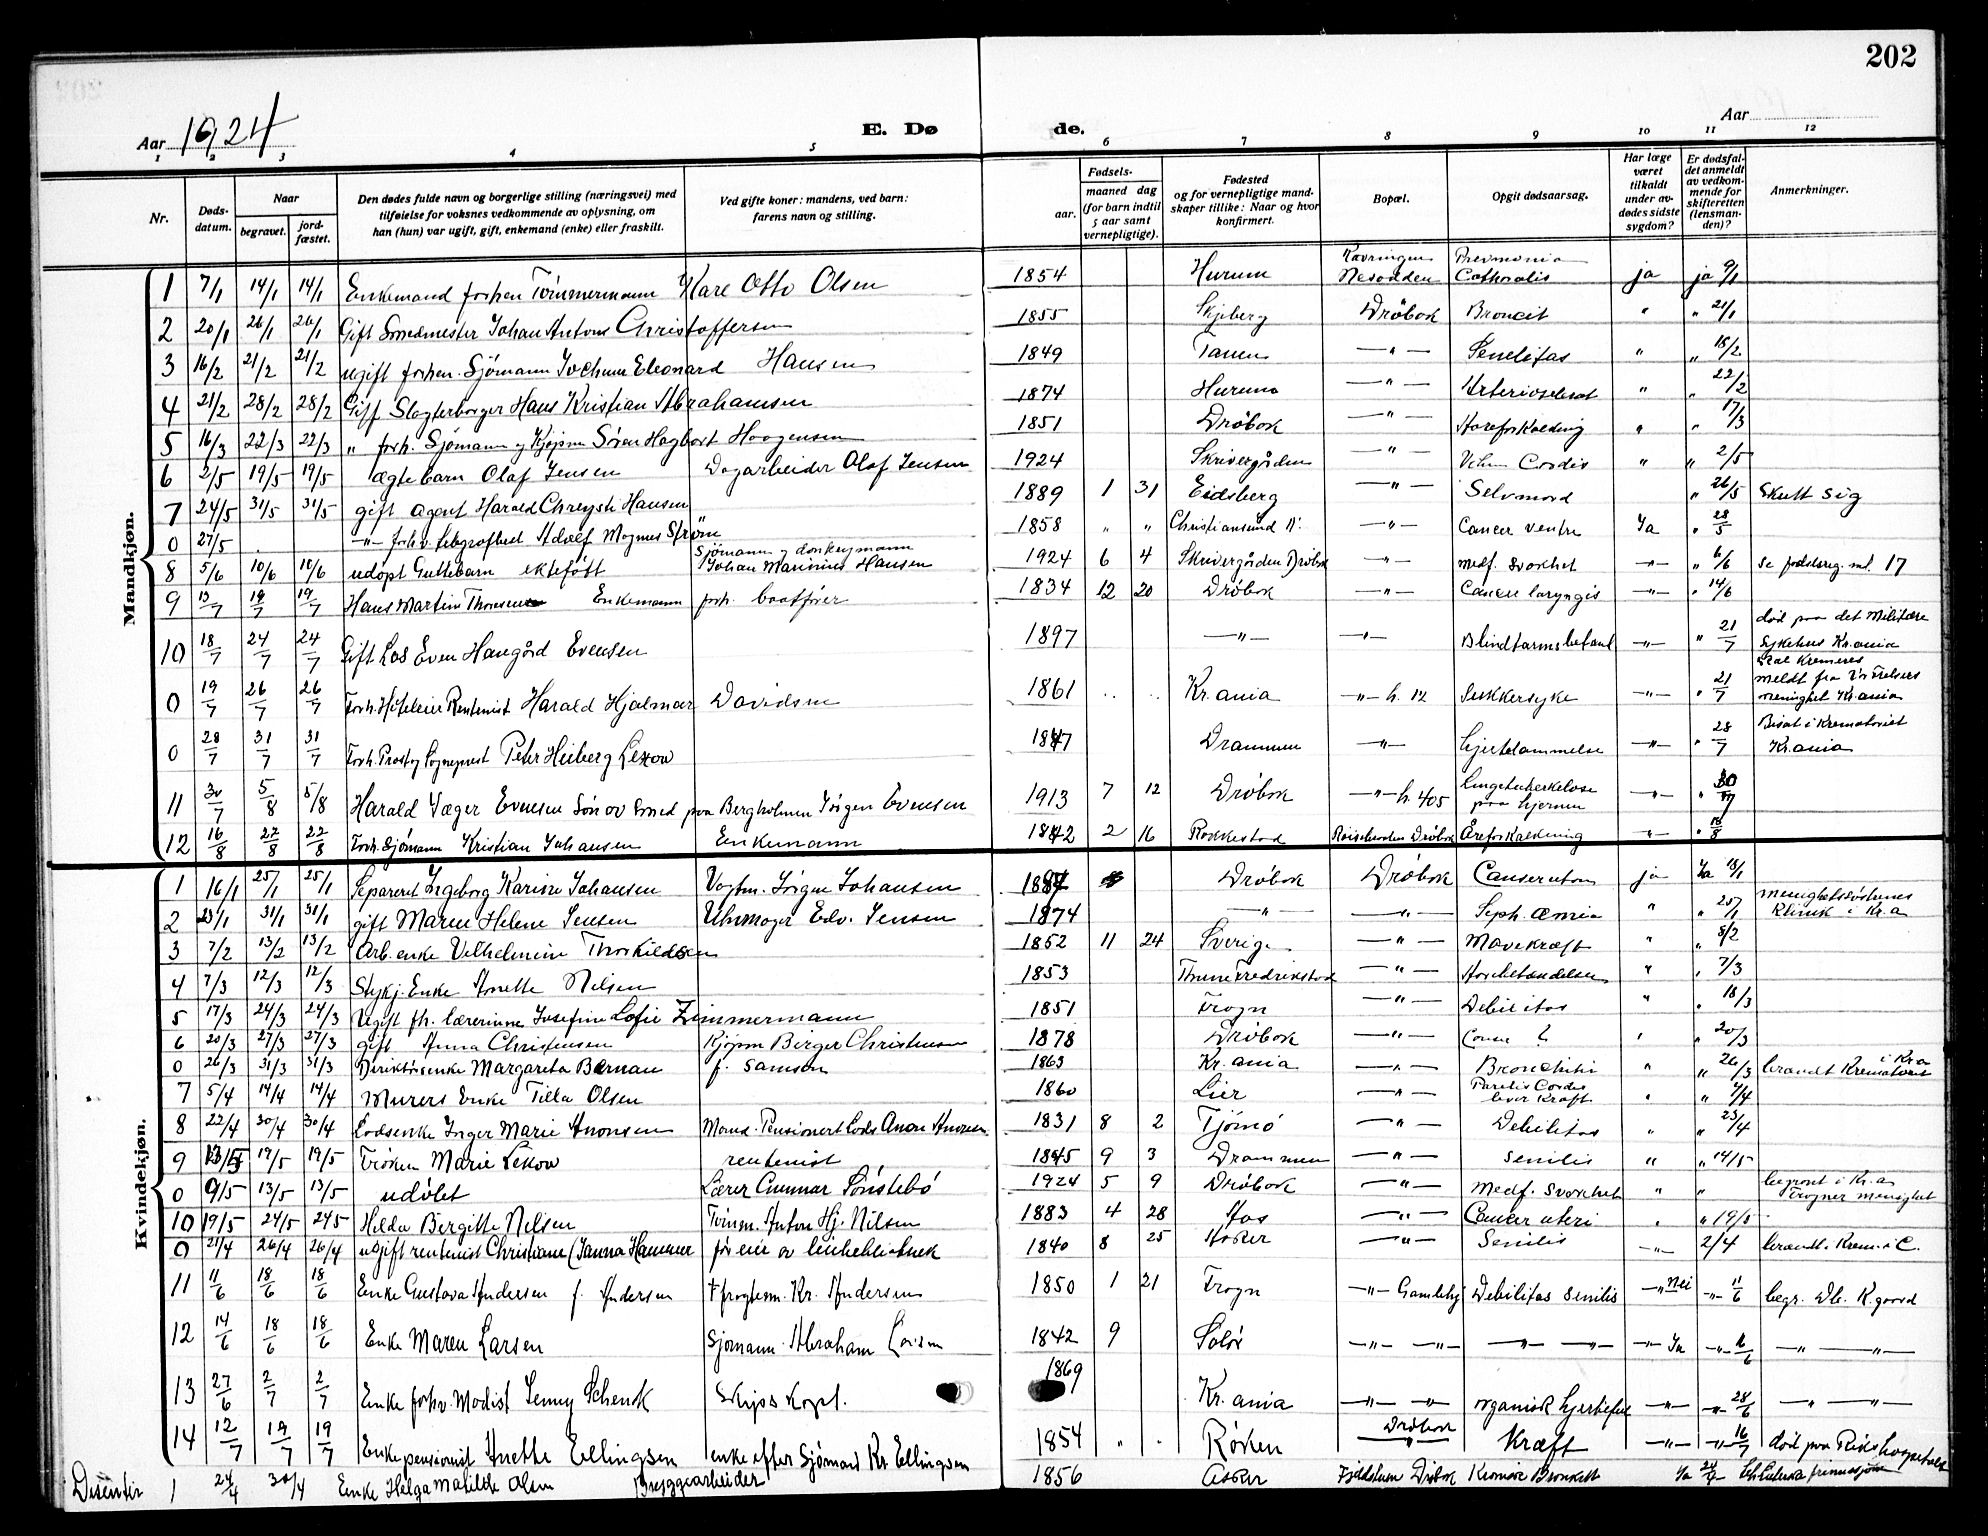 202
Aar 1924 E. Døde. Aar
1 2 3 4 5 6 7 8 9 10 11 12
Nr. Dødsdatum. Naar begravet. jordfæstet. Den dødes fulde navn og borgerlige stilling (næringsvei) med tilføielse for voksnes vedkommende av oplysning, om han (hun) var ugift, gift, enkemand (enke) eller fraskilt. Ved gifte koner: mandens, ved barn: farens navn og stilling. Fødsels- aar. maaned dag (for barn indtil 5 aar samt vernepligtige). Fødested og for vernepligtige mandskaper tillike: Naar og hvor konfirmert. Bopæl. Opgit dødsaarsag. Har læge været tilkaldt under avdødes sidste sygdom? Er dødsfaldet anmeldt av vedkommende for skifteretten (lensmanden)? Anmerkninger.
Mandkjøn.
1 7/1 14/1 14/1 Enkemand forhen Tømmermann Kare Otto Olsen 1854 Hurum Nesodden ja ja 9/1
2 20/1 26/1 26/1 Gift Smedmester Johan Antons Christoffersen 1855 Skjeberg Drøbak Broncit " " 21/1
3 16/2 21/2 21/2 ugift forhen. Sjømann Jochum Eleonard Hansen 1849 Tanum —"— Senelitas " " 18/2
4 21/2 28/2 28/2 Gift Slagterborger Hans Kristian Abrahamsen 1874 Hurum —"— " " 22/2
5 16/3 22/3 22/3 " forh. Sjømann og Kjøpm Søren Hagbart Haagensen 1851 Drøbak —"— Aareforkalkning " " 17/3
6 2/5 19/5 19/5 ægtebarn Olaf Jensen Dagarbeider Olaf Jensen 1924 Skrivergården —"— Cordis " " 2/5
7 24/5 31/5 31/5 gift agent Harald Hansen 1889 1 31 Eidsberg —"— Selvmord " 26/5 Skutt sig
0 27/5 —"— forhv. Adolf Magnus Strøm 1858 " " Christiansund N. —"— Cancer ventre Ja " 28/5
8 5/6 10/6 10/6 udøpt Guttebarn ektefött Sjømann og donkeymann Johan Marinius Hansen 1924 6 4 Skrivergården Drøbak —"— medf. svakhet —"— " 6/6 se fødselsreg. nr. 17
9 13/7 19/7 19/7 Hans Martin Thoresen Enkemann forh. baatfører 1834 12 20 Drøbak —"— Cancer laryngis —"— " 14/6
10 18/7 24/7 24/7 Gift Los Even Haugård Evensen 1897 —"— —"— Blindtarmsbetænd —"— " 21/7 død paa det Militære Sykehus Kr.ania
0 19/7 26/7 26/7 Rentenist Harald Hjalmar Davidsen 1861 " " Kr.ania —"— h. 12 Sukkersyke —"— " 21/7 Skal Kremeres meldt fra Vor Frelsers menighet Kr.ania
0 28/7 31/7 31/7 Forh. Prost og Sogneprest Peter Heiberg Lexow 1847 Drammen —"— —"— " 28/7 Bisat i Krematoriet Kr.ania
11 30/7 5/8 5/8 Harald Jæger Evensen Søn av Smed paa Bergholmen Jørgen Evensen 1913 7 12 Drøbak —"— h. 405 paa hjernen —"— " 30/7
12 16/8 22/8 22/8 Forh. Sjømann Kristian Johansen Enkemann 1842 2 16 Rakkestad Drøbak Åreforkalkning —"— " 18/8
Kvindekjøn.
1 16/1 25/1 25/1 Separeret Ingeborg Karine Johansen Vogtm. Jørgen Johansen 1887 Drøbak Drøbak ja Ja 18/1
2 23/1 31/1 31/1 gift Maren Helene Jensen Uhrmager Edv. Jensen 1874 —"— —"— Seph. æmia " " 25/1 menighetssøstrenes Klinik i Kr.a
3 7/2 13/2 13/2 Arb. enke Vilhelmine Thorkildsen 1852 11 24 Sverige —"— Mavekræft " " 8/2
4 7/3 12/3 12/3 Stykj. Enke Anette Nilsen 1853 Fredrikstad —"— " " 7/3
5 17/3 24/3 24/3 Ugift fh. lærerinne Josefine Lofie Zimmermann 1851 Frogn —"— Debilitas " " 18/3
6 20/3 27/3 27/3 gift Anna Christensen Kjøpm Birger Christensen 1878 Drøbak —"— Cancer ? " " 20/3
0 26/3 31/3 31/3 Direktørsenke Margareta Bernau f. Samson 1863 Kr.ania —"— Bronchiti " " 26/3 brændt Krematoriet i Kr.a
7 5/4 14/4 14/4 Murers Enke Tilla Olsen 1860 Lier —"— Cordis lever kræft " " 7/4
8 22/4 30/4 30/4 Lodsenke Inger Marie Anonsen Mand. Pensionert Lods Anon Anonsen 1831 8 2 Tjømø —"— Debilitas " " 23/4
9 13/5 19/5 19/5 Frøken Marie Lexow rentenist 1845 9 3 Drammen —"— Senilis " " 14/5
0 9/5 13/5 13/5 udøbt Lærer Gunnar Sønstebö 1924 5 9 Drøbak —"— Medf. Svakhet " " begravet i Kr.a Frogner menighet
10 19/5 24/5 24/5 Hilda Bergitte Nilsen Tømm. Anton Hj. Nilsen 1883 4 28 Aas —"— Cancer uteri " " 19/5
0 21/4 26/4 26/4 ugift rentenist Christiane (Janna Hammer før eier av leiebibliotek 1840 8 25 Asker —"— Senilis —"— 2/4 brændt i Krem. i C.
11 11/6 18/6 18/6 Enke Gustava Andersen f. Andersen Kr. Andersen 1850 1 21 Frogn —"— Gamlehj Debilitas senilis —"— Nei —"— 11/6 begr. Db. K.gaard
12 14/6 18/6 18/6 Enke Maren Larsen Sjømann Abraham Larsen 1842 9 Solør —"— —"— —"— —"— —"— Ja —"— 16/6 —"— —"—
13 27/6 2/7 2/7 Enke forhv. Modist Jenny Schenck Skibs Kapt. 1869 Kr.ania —"— —"— organisk hjertefeil —"— —"— 28/6 —"— —"—
14 12/7 19/7 19/7 Enkepensionist Anette Ellingsen enke efter Sjømand Kr. Ellingsen 1854 " " Røken Drøbak Kræft —"— —"— 16/7 død paa Rikshospitalet
Disenter 1 24/4 30/4 Enke Helga Matilde Olsen Bryggearbeider 1856 Asker Drøbak Kronisk Bronkitt Ja